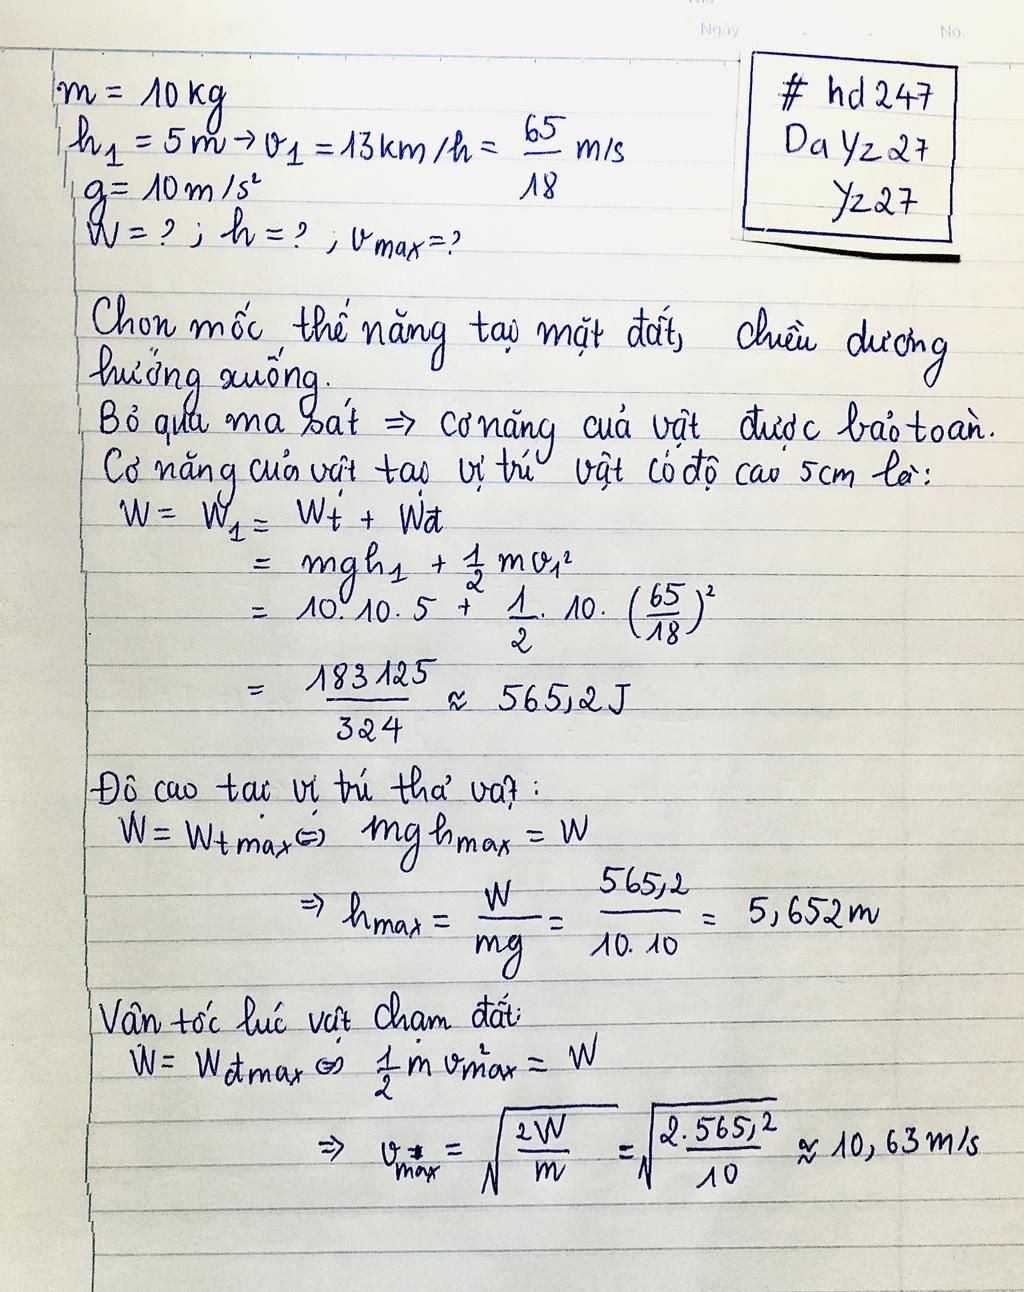 Ngày
No.
m = 10 kg
h₁ = 5m → v₁ = 13km/h = 65/18 m/s
g = 10m/s²
W = ? ; h = ? ; vmax = ?
# hd247
DaYz27
Yz27
Chọn mốc thế năng tại mặt đất, chiều dương
hướng xuống.
Bỏ qua ma sát => cơ năng của vật được bảo toàn.
Cơ năng của vật tại vị trí vật có độ cao 5cm là:
W = W₁ = Wt + Wđ
= mgh₁ + 1/2 mv₁²
= 10.10.5 + 1/2 . 10. (65/18)²
= 183125/324 ≈ 565,2J
Độ cao tại vị trí thả vật:
W = Wtmax <=> mghmax = W
=> hmax = W/mg = 565,2/10.10 = 5,652m
Vận tốc lúc vật chạm đất:
W = Wđmax <=> 1/2 m v²max = W
=> vmax = √(2W/m) = √(2.565,2/10) ≈ 10,63m/s